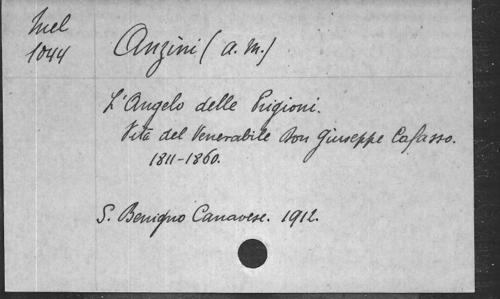 Mel
1044
Anzini (A. M.)
L'Angelo delle Prigioni.
Vita del Venerabile Don Giuseppe Cafasso.
1811-1860.
S. Benigno Canavese. 1912.